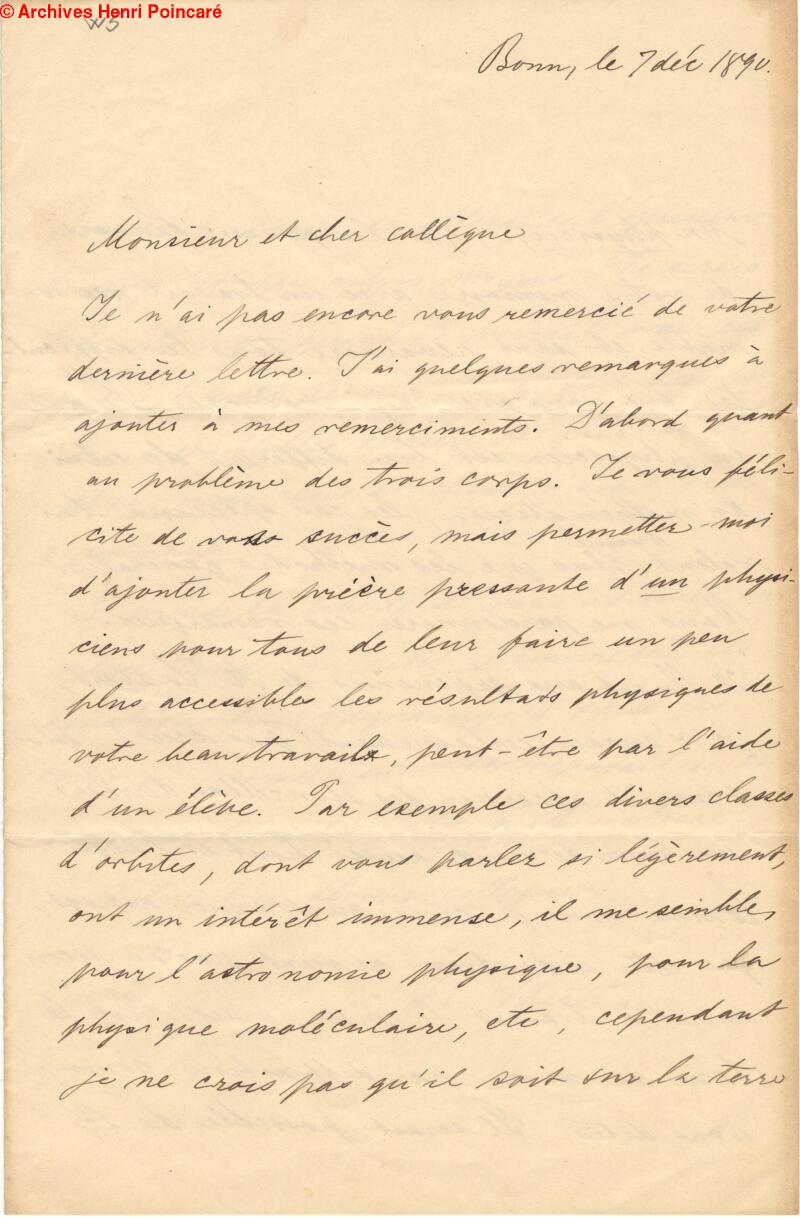 © Archives Henri Poincaré
Bonn, le 7 déc 1890.
Monsieur et cher collègue
Je n'ai pas encore vous remercié de votre
dernière lettre. J'ai quelques remarques à
ajouter à mes remerciments. D'abord quant
au problème des trois corps. Je vous féli-
cite de succès, mais permetter-moi
d'ajouter la prière pressante d'un physi-
ciens pour tous de leur faire un peu
plus accessibles les résultats physiques de
votre beau travail, peut-être par l'aide
d'un élève. Par exemple ces divers classes
d'orbites, dont vous parlez si légèrement,
ont un intérêt immense, il me semble,
pour l'astronomie physique, pour la
physique moléculaire, etc, cependant
je ne crois pas qu'il soit sur la terre